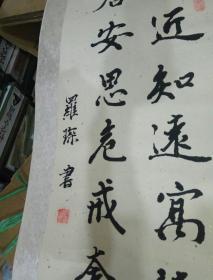 近知遠寓
居安思危戒奢
羅琛書